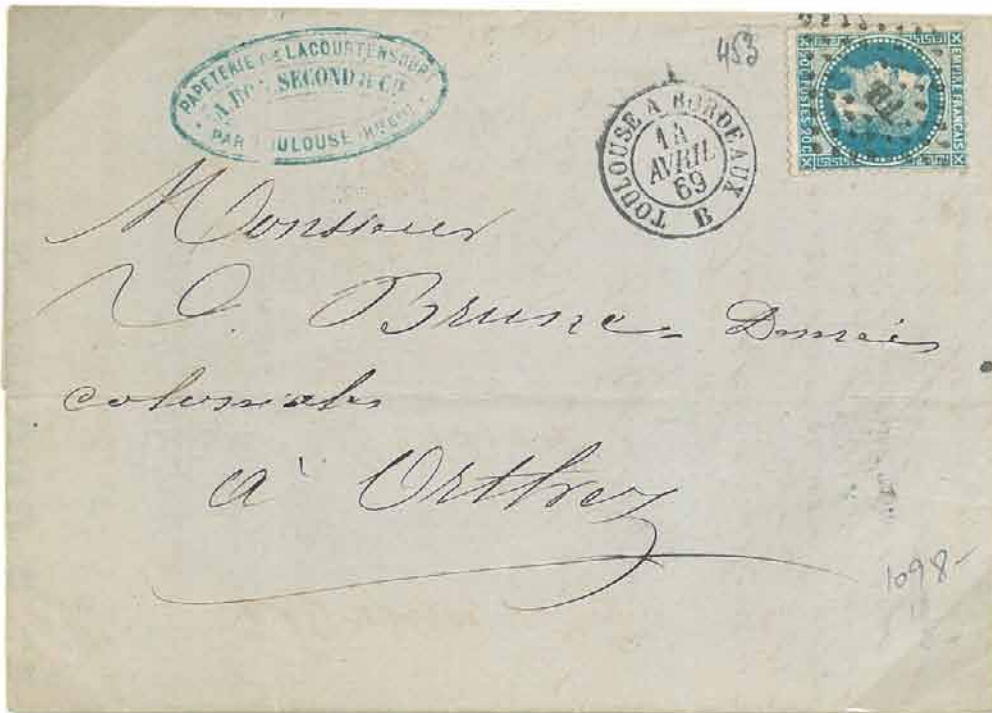 PAPETERIE DE LACOURTENSOUR
SECOND & Cie
PAR TOULOUSE
453
TOULOUSE A BORDEAUX
14
AVRIL
69
B
EMPIRE FRANÇAIS
20c POSTES 20c
TB
Monsieur
Brune Denrées
coloniales
à Orthez
1098-